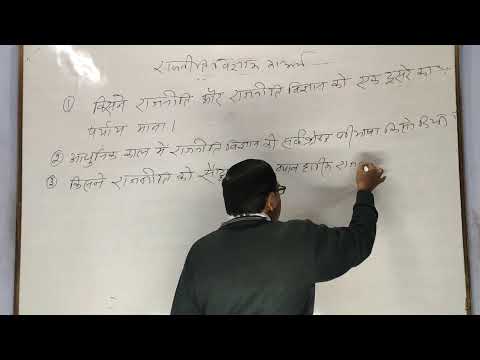 राजनीति विज्ञान का अर्थ
① किसने राजनीति और राजनीति विज्ञान को एक दूसरे का
पर्याय माना।
② आधुनिक काल में राजनीति विज्ञान की सर्वश्रेष्ठ परिभाषा किसने
③ किसने राजनीति को